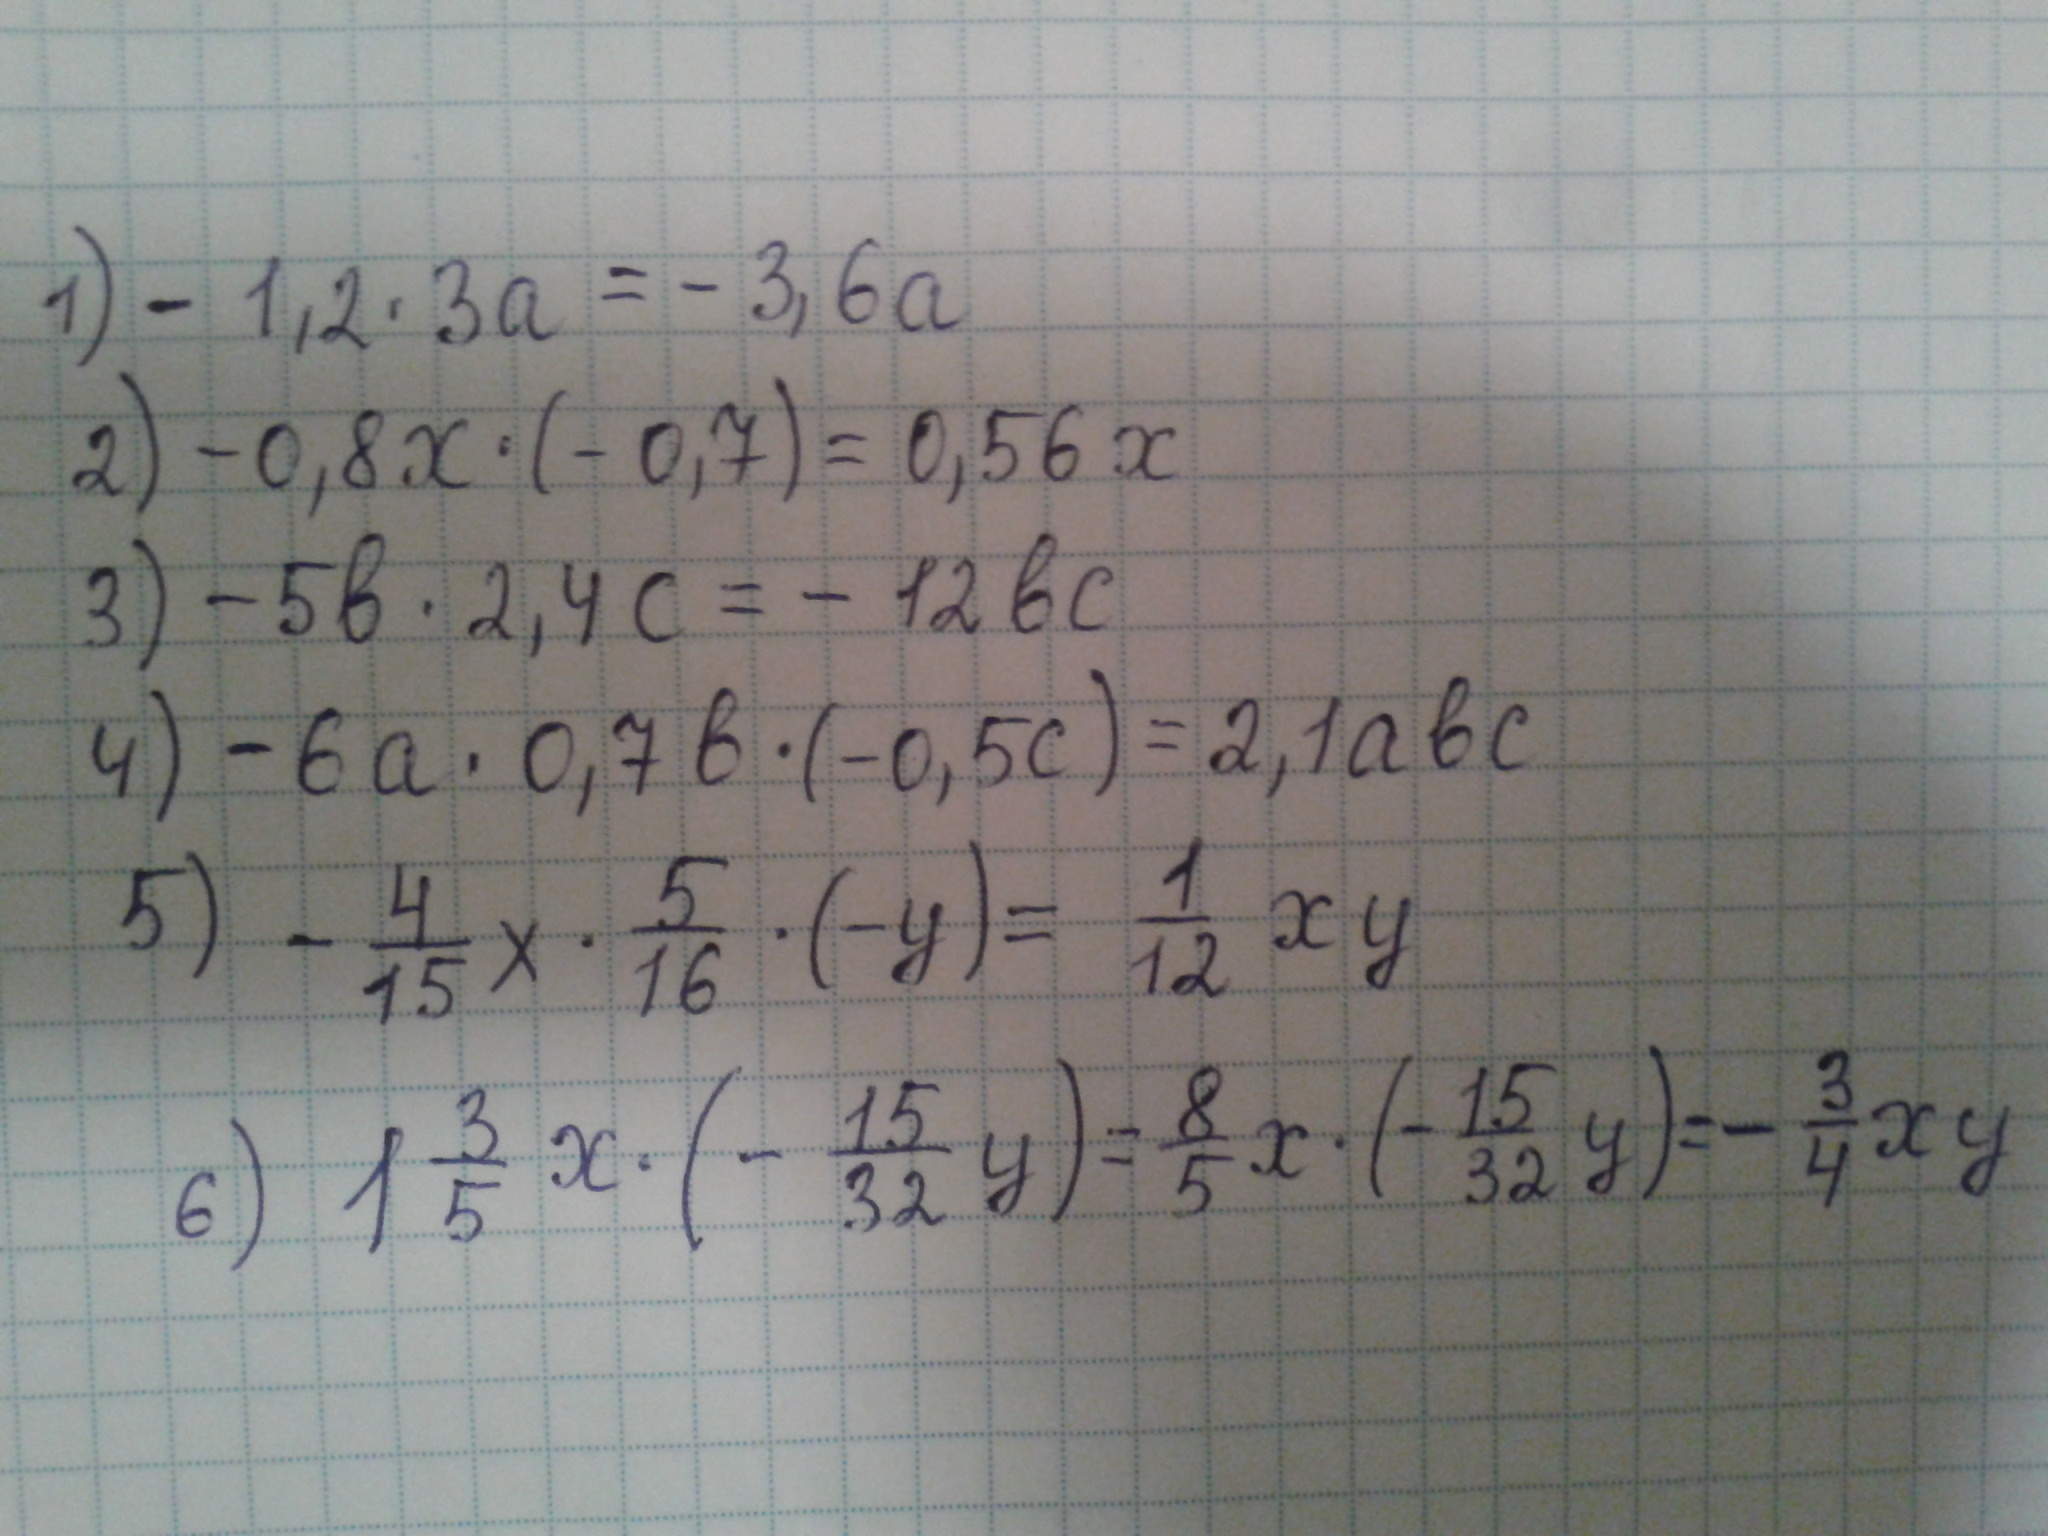 1) - 1,2 · 3a = - 3,6a
2) -0,8x · (- 0,7) = 0,56x
3) -5b · 2,4c = - 12bc
4) -6a · 0,7b · (-0,5c) = 2,1abc
5) - 4/15 x · 5/16 · (-y) = 1/12 xy
6) 1 3/5 x · (- 15/32 y) = 8/5 x · (- 15/32 y) = - 3/4 xy